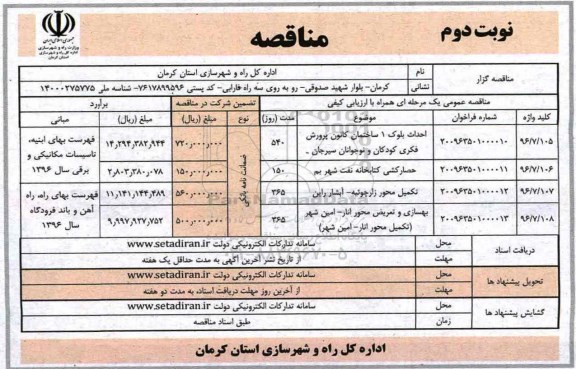 نوبت دوم
مناقصه
جمهوری اسلامی ایران
وزارت راه و شهرسازی
اداره کل راه و شهرسازی
استان کرمان
مناقصه گزار
نام
اداره کل راه و شهرسازی استان کرمان
نشانی
کرمان- بلوار شهید صدوقی- رو به روی سه راه فارابی- کد پستی ۷۶۱۷۸۹۹۵۹۶- شناسه ملی ۱۴۰۰۰۲۷۵۷۷۵
مناقصه عمومی یک مرحله ای همراه با ارزیابی کیفی
تضمین شرکت در مناقصه
برآورد
کلید واژه
شماره فراخوان
موضوع
مدت (روز)
نوع
مبلغ (ریال)
مبلغ (ریال)
مبانی
۹۶/۷/۱۰۵
۲۰۰۹۶۳۵۰۱۰۰۰۰۱۰
احداث بلوک ۱ ساختمان کانون پرورش فکری کودکان و نوجوانان سیرجان
۵۴۰
ضمانت نامه بانکی
۷۲۰,۰۰۰,۰۰۰
۱۴,۲۹۴,۳۸۲,۹۴۴
فهرست بهای ابنیه، تاسیسات مکانیکی و برقی سال ۱۳۹۶
۹۶/۷/۱۰۶
۲۰۰۹۶۳۵۰۱۰۰۰۰۱۱
حصارکشی کتابخانه نفت شهر بم
۱۵۰
۱۵۰,۰۰۰,۰۰۰
۲,۸۰۳,۳۸۰,۰۷۸
۹۶/۷/۱۰۷
۲۰۰۹۶۳۵۰۱۰۰۰۰۱۲
تکمیل محور زارچوئیه- آبشار راین
۳۶۵
۵۶۰,۰۰۰,۰۰۰
۱۱,۱۴۱,۱۴۴,۴۸۹
فهرست بهای راه، راه آهن و باند فرودگاه سال ۱۳۹۶
۹۶/۷/۱۰۸
۲۰۰۹۶۳۵۰۱۰۰۰۰۱۳
بهسازی و تعریض محور انار- امین شهر (تکمیل محور انار- امین شهر)
۳۶۵
۵۰۰,۰۰۰,۰۰۰
۹,۹۹۷,۹۳۷,۷۵۲
دریافت اسناد
محل
سامانه تدارکات الکترونیکی دولت www.setadiran.ir
مهلت
از تاریخ نشر آخرین آگهی به مدت حداقل یک هفته
تحویل پیشنهاد ها
محل
سامانه تدارکات الکترونیکی دولت www.setadiran.ir
مهلت
از آخرین روز مهلت دریافت اسناد، به مدت دو هفته
گشایش پیشنهاد ها
محل
سامانه تدارکات الکترونیکی دولت www.setadiran.ir
زمان
طبق اسناد مناقصه
اداره کل راه و شهرسازی استان کرمان